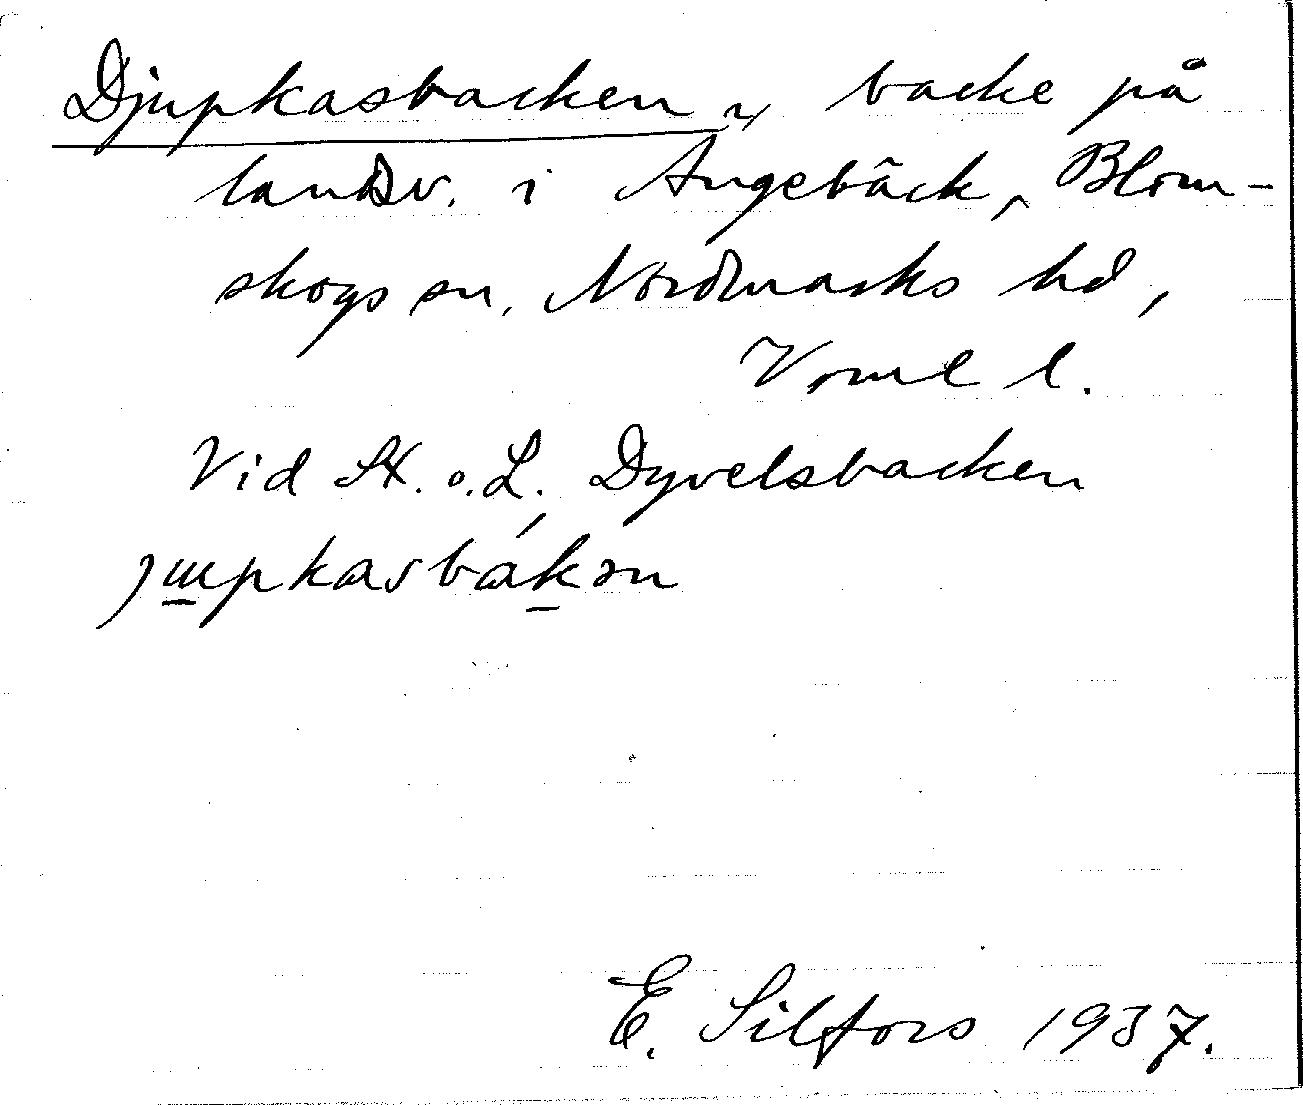 Djupkasbacken, backe på
landsv. i Angebäck, Blom-
skogs sn, Nordmarks hd,
Vrml l.
Vid St. o. L. Dyvelsbacken
E. Silfors 1937.